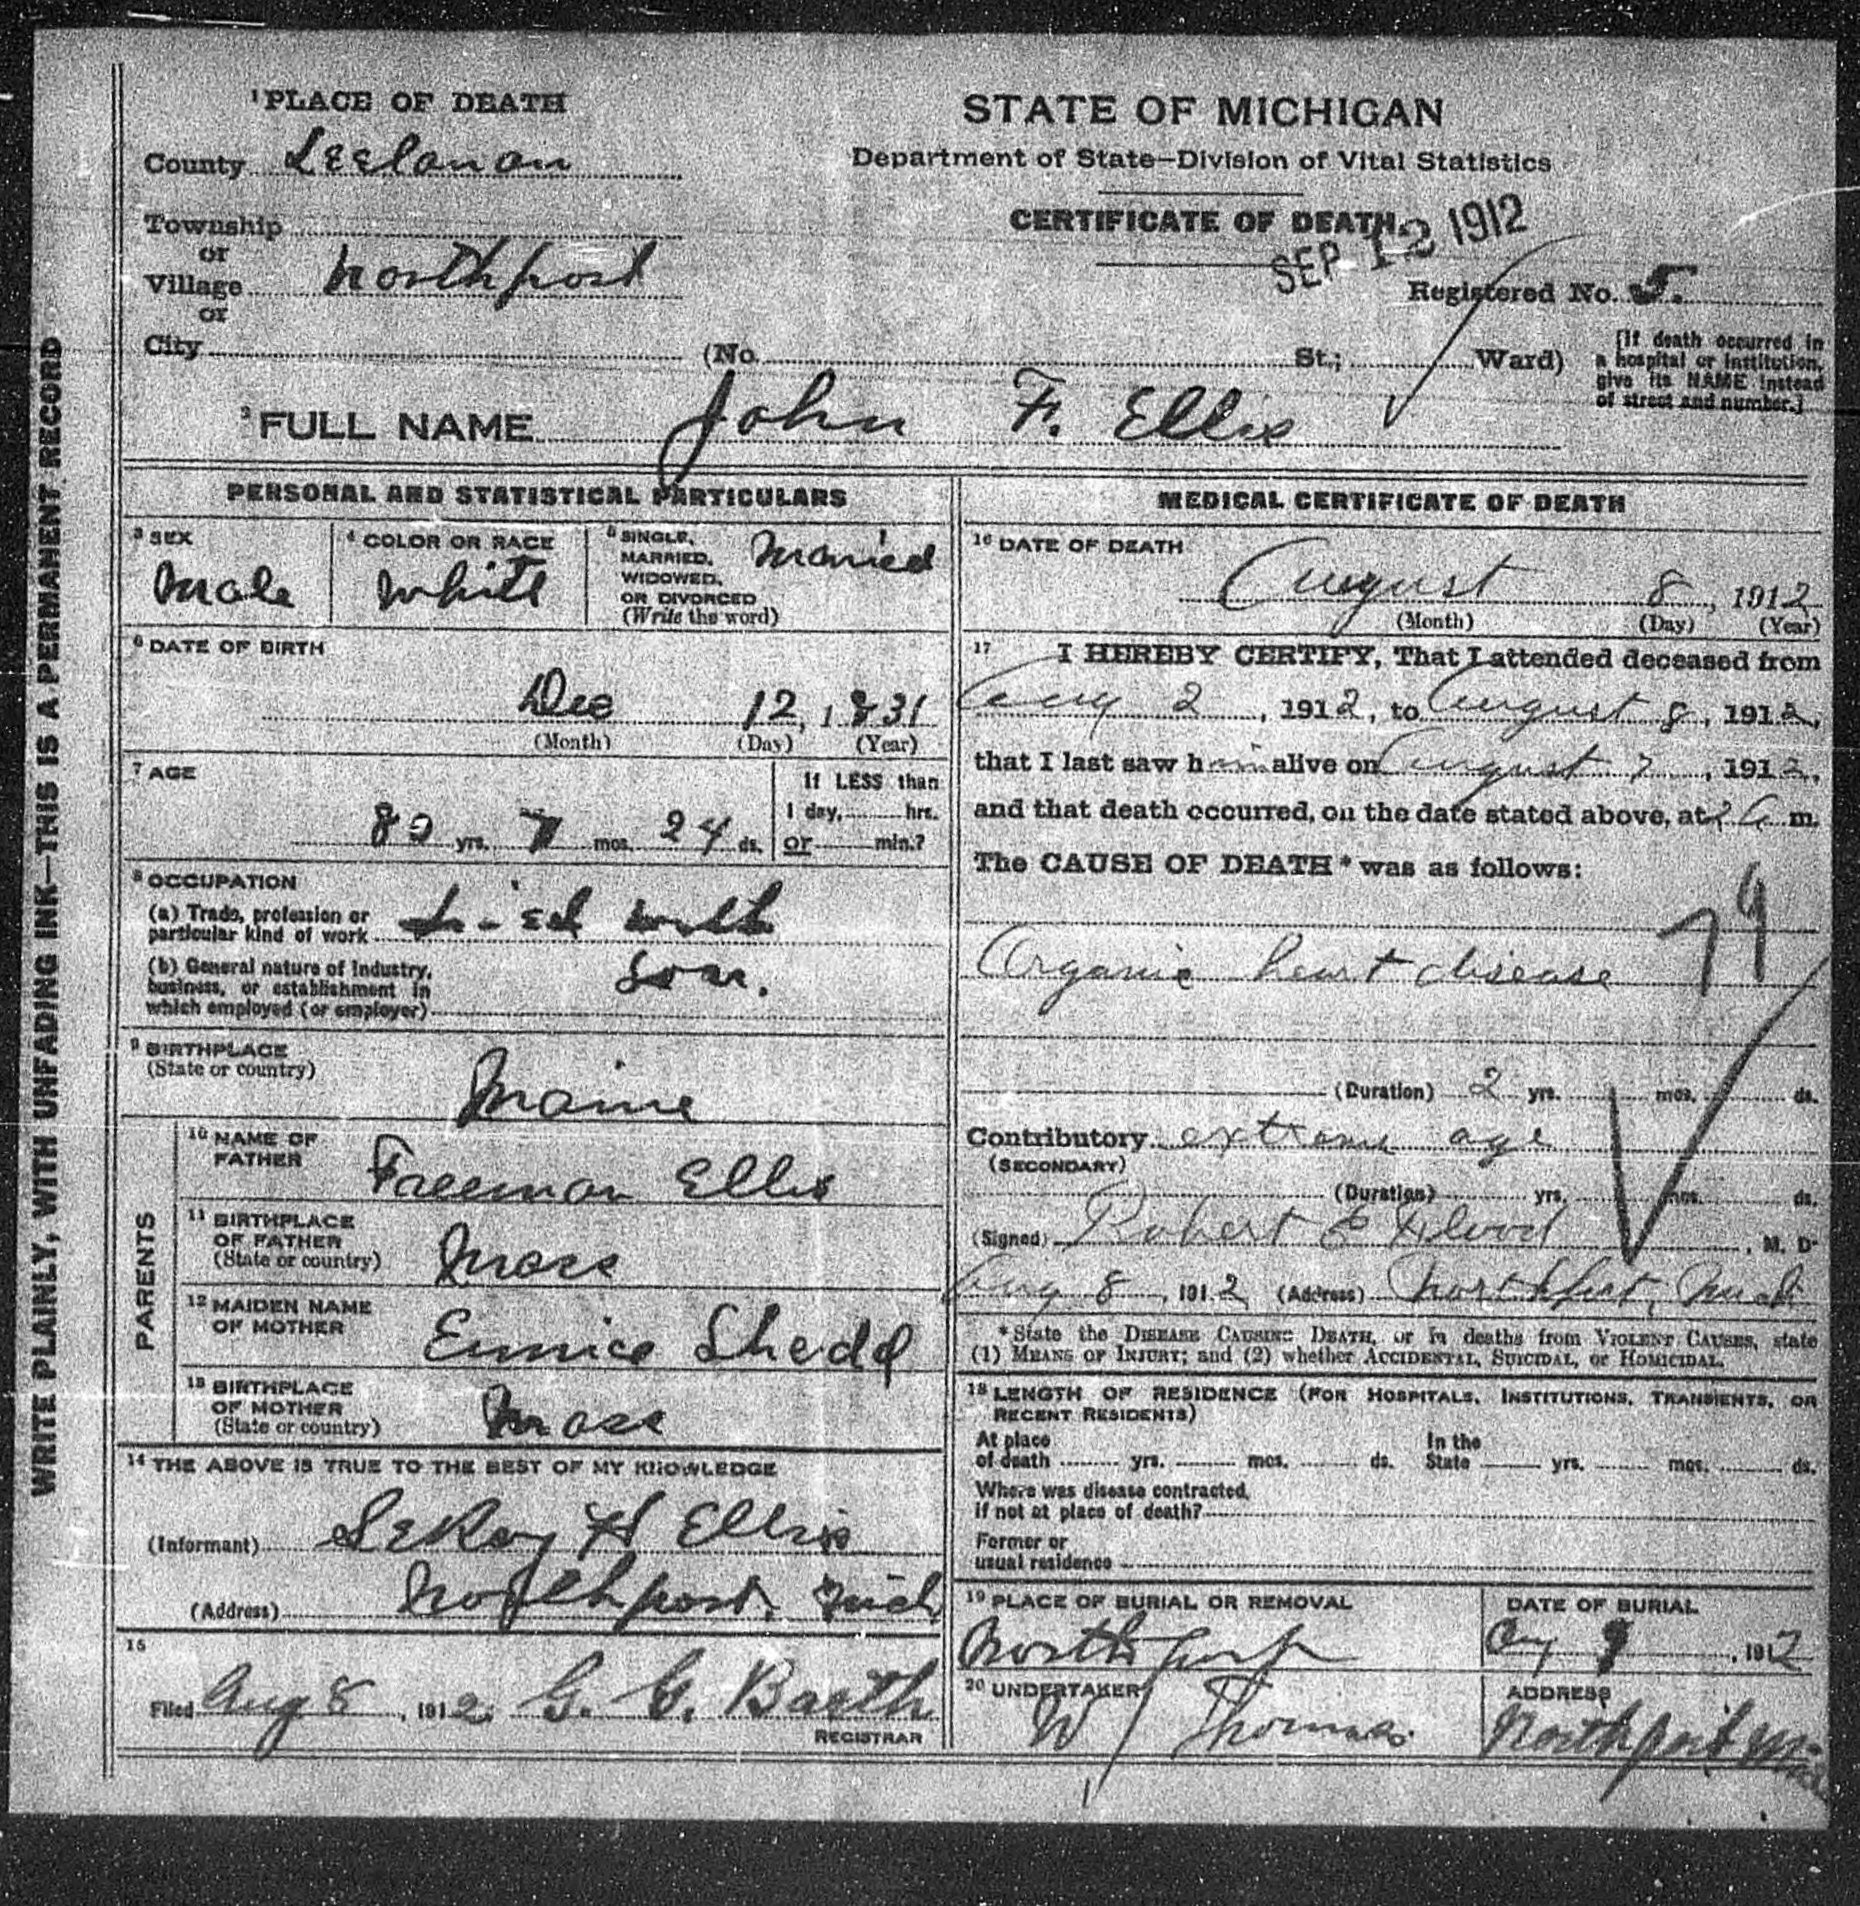 1 PLACE OF DEATH
County Leelanau
Township
or
Village Northport
or
City
(No. St.; Ward)
STATE OF MICHIGAN
Department of State—Division of Vital Statistics
CERTIFICATE OF DEATH
SEP 12 1912
Registered No. 5.
[If death occurred in
a hospital or institution,
give its NAME instead
of street and number.]
2 FULL NAME John F. Ellis
WRITE PLAINLY, WITH UNFADING INK—THIS IS A PERMANENT RECORD
PERSONAL AND STATISTICAL PARTICULARS
3 SEX
Male
4 COLOR OR RACE
White
5 SINGLE,
MARRIED,
WIDOWED,
OR DIVORCED
(Write the word)
Married
6 DATE OF BIRTH
Dec 12, 1831
(Month) (Day) (Year)
7 AGE
80 yrs. 7 mos. 24 ds.
If LESS than
1 day, hrs.
or min.?
8 OCCUPATION
(a) Trade, profession or
particular kind of work
(b) General nature of industry,
business, or establishment in
which employed (or employer)
Son.
9 BIRTHPLACE
(State or country)
Maine
PARENTS
10 NAME OF
FATHER
Freeman Ellis
11 BIRTHPLACE
OF FATHER
(State or country)
Mass
12 MAIDEN NAME
OF MOTHER
Eunice Shedd
13 BIRTHPLACE
OF MOTHER
(State or country)
Mass
14 THE ABOVE IS TRUE TO THE BEST OF MY KNOWLEDGE
(Informant) LeRoy H Ellis
(Address) Northport, Mich
15
Filed Aug 8, 1912. G. G. Barth
REGISTRAR
MEDICAL CERTIFICATE OF DEATH
16 DATE OF DEATH
August 8, 1912
(Month) (Day) (Year)
17 I HEREBY CERTIFY, That I attended deceased from
Aug 2, 1912, to August 8, 1912,
that I last saw him alive on August 7, 1912,
and that death occurred, on the date stated above, at 2 a m.
The CAUSE OF DEATH* was as follows:
79
Organic heart disease
(Duration) 2 yrs. mos. ds.
Contributory extreme age
(SECONDARY)
(Duration) yrs. mos. ds.
(Signed) Robert E Flood, M. D.
Aug 8, 1912 (Address) Northport, Mich
*State the DISEASE CAUSING DEATH, or in deaths from VIOLENT CAUSES, state
(1) MEANS OF INJURY; and (2) whether ACCIDENTAL, SUICIDAL, or HOMICIDAL.
18 LENGTH OF RESIDENCE (FOR HOSPITALS, INSTITUTIONS, TRANSIENTS, OR
RECENT RESIDENTS)
At place
of death yrs. mos. ds.
In the
State yrs. mos. ds.
Where was disease contracted,
if not at place of death?
Former or
usual residence
19 PLACE OF BURIAL OR REMOVAL
Northport
DATE OF BURIAL
Aug 9, 1912
20 UNDERTAKER
W Thomas.
ADDRESS
Northport Mich